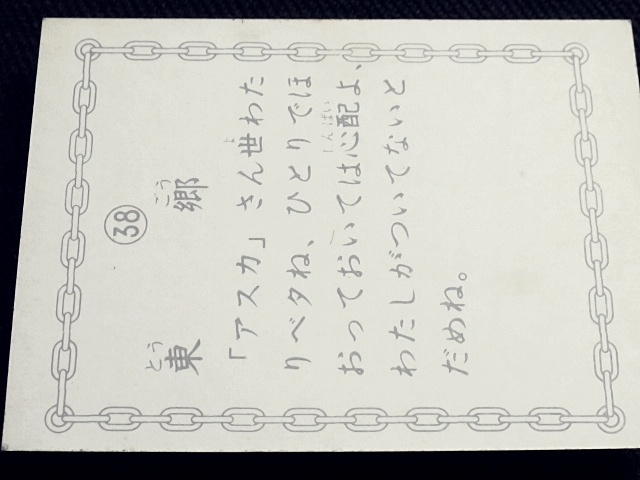 ㊳
とう ごう
東 郷
よ
「アスカ」さん世わた
りベタね、ひとりでほ
しんぱい
おっておいては心配よ、
わたしがついてないと
だめね。